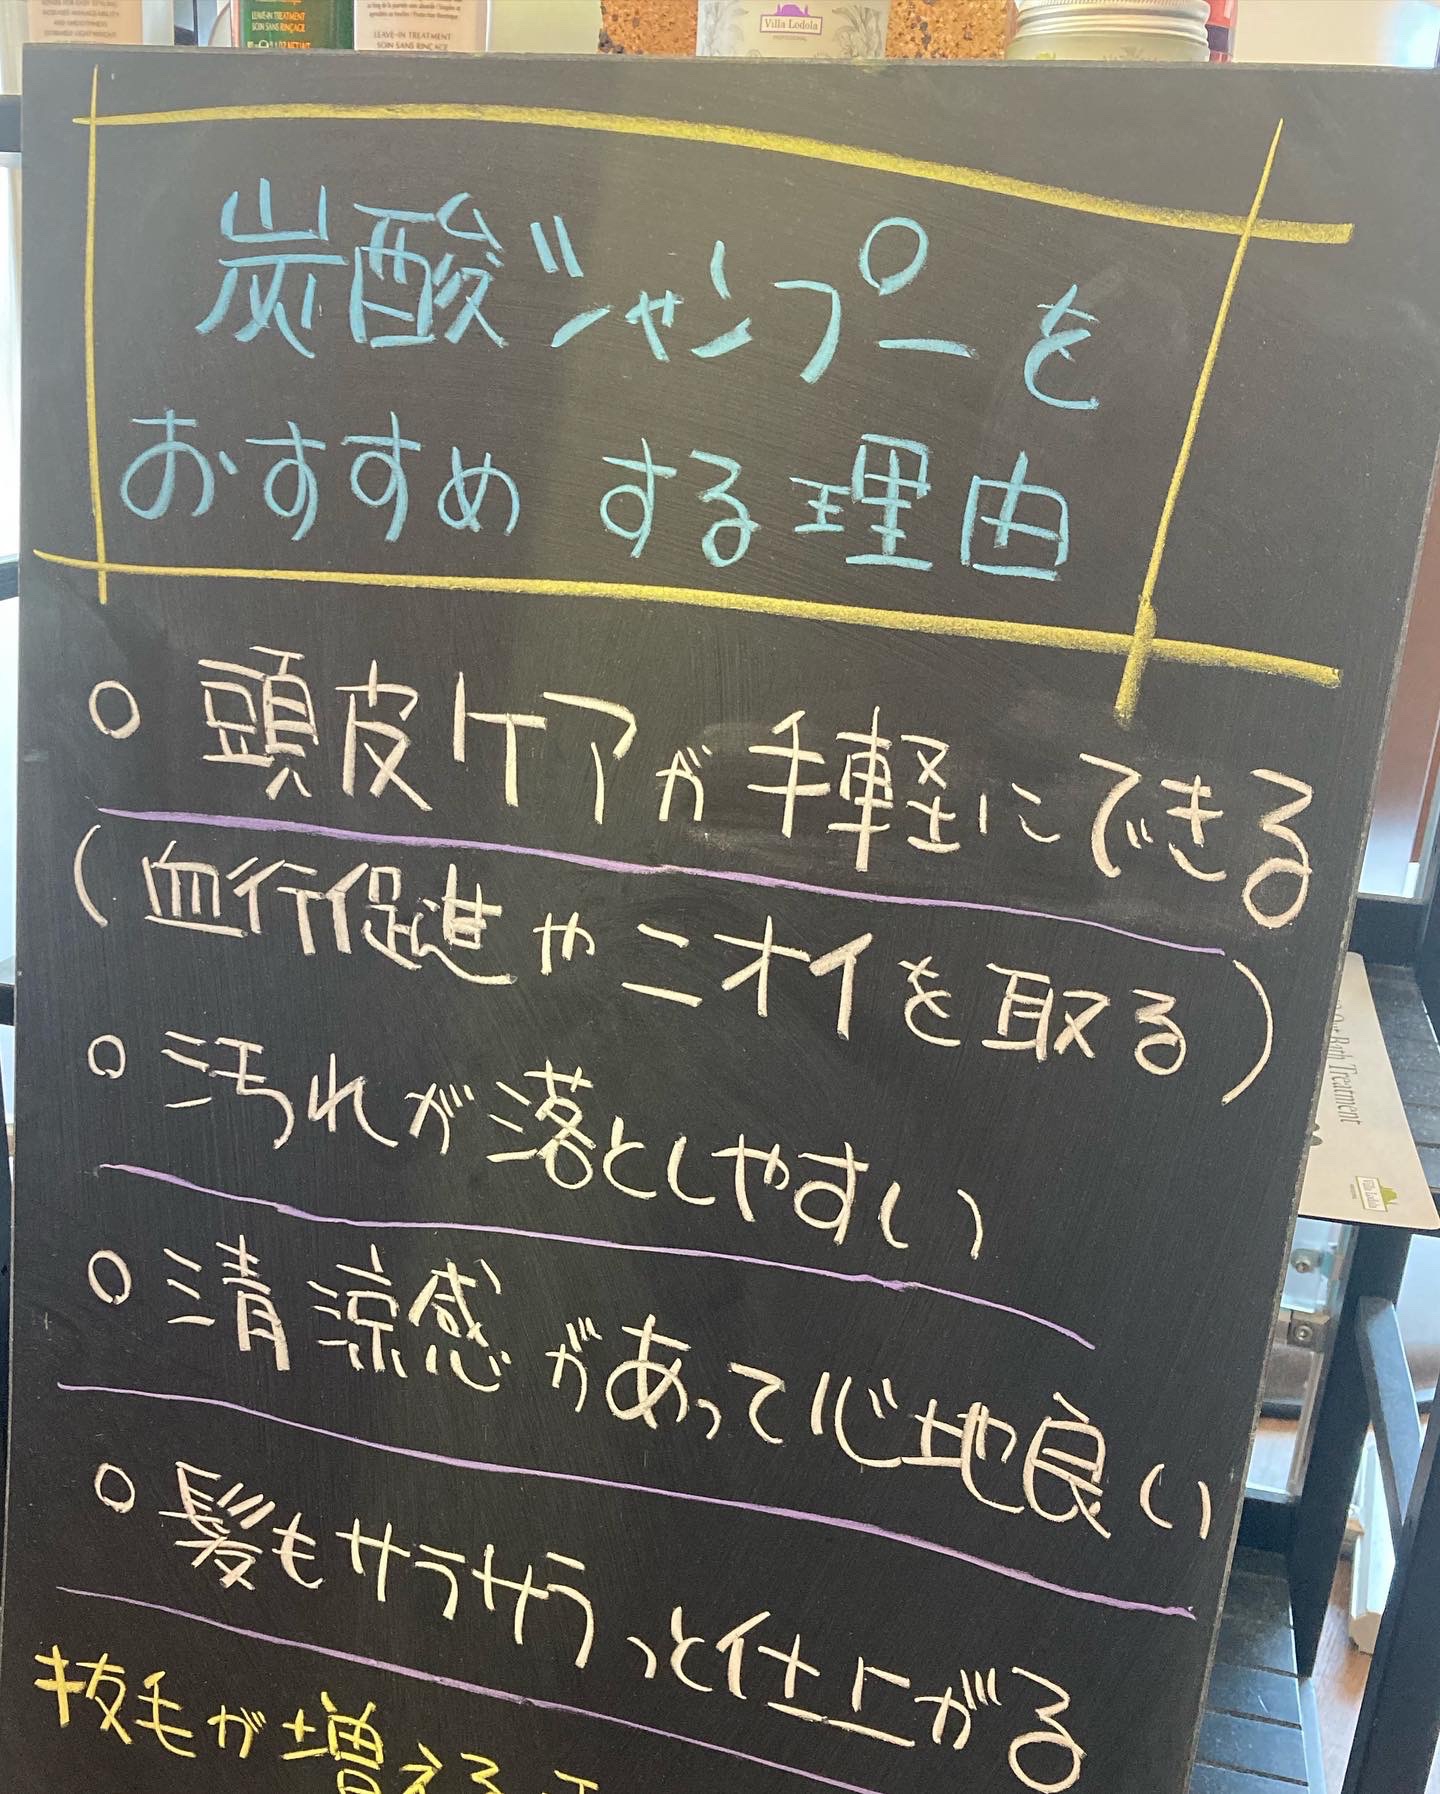 LEAVE-IN TREATMENT
SOIN SANS RINÇAGE
LEAVE-IN TREATMENT
SOIN SANS RINÇAGE
Villa Lodola
PROFESSIONAL
炭酸シャンプーを
おすすめする理由
○ 頭皮ケアが手軽にできる
(血行促進やニオイを取る)
○ 汚れが落としやすい
○ 清涼感があって心地良い
○ 髪もサラサラっと仕上がる
抜毛が増える
Bath Treatment
Villa Lodola